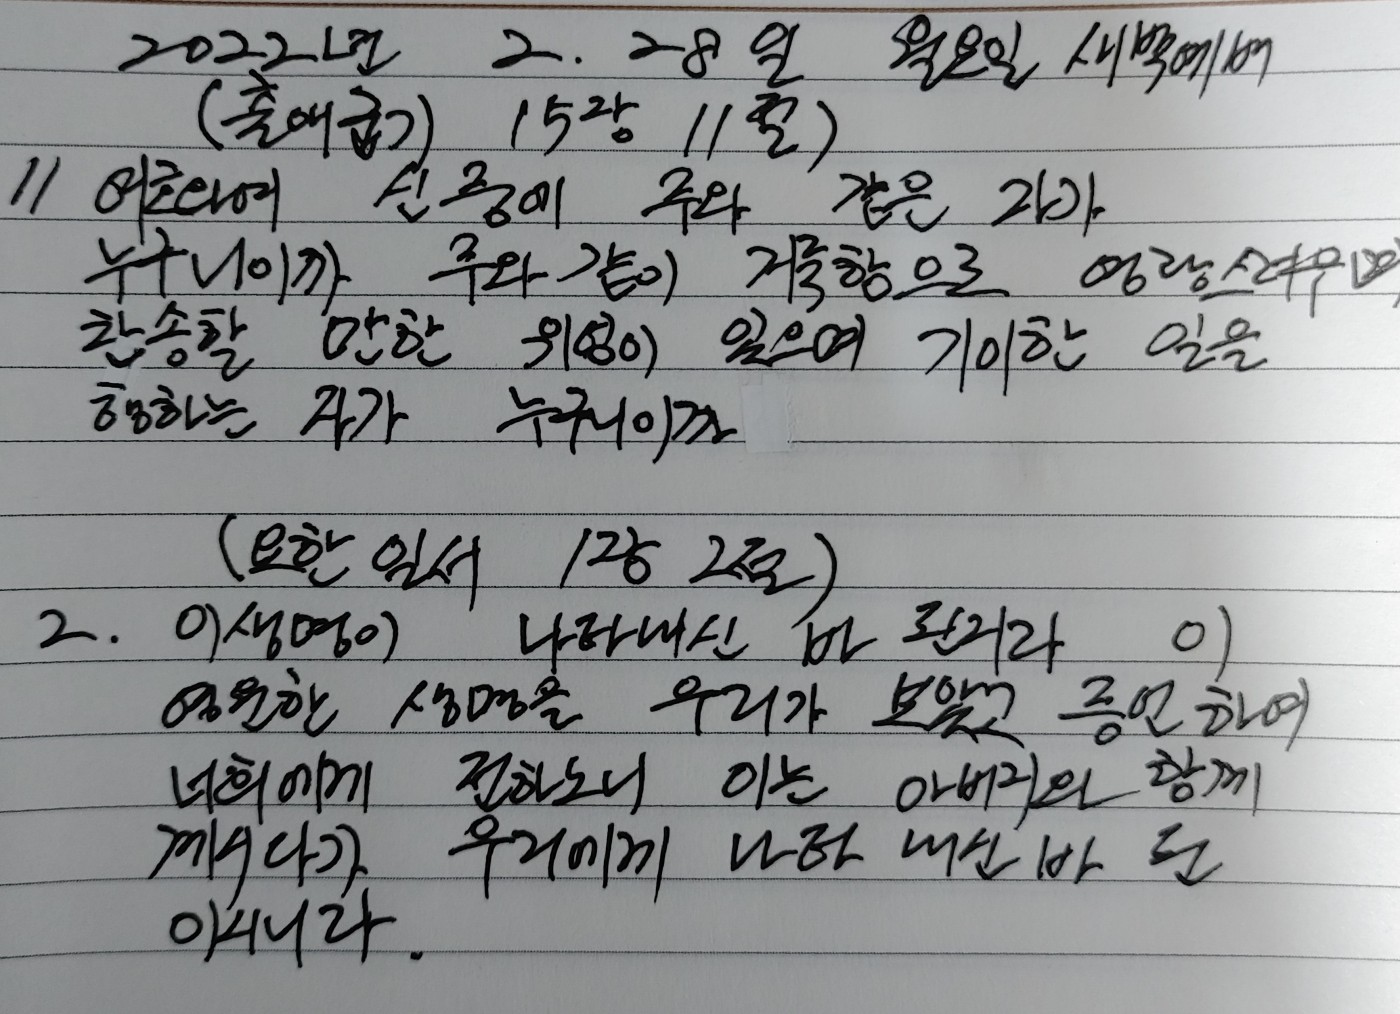 2022년 2. 28일 월요일 새벽예배
(출애굽기) 15장 11절)
11 여호와여 신중에 주와 같은 자가
누구니이까 주와 같이 거룩함으로 영광스러우며
찬송할 만한 위엄이 있으며 기이한 일을
행하는 자가 누구니이까
(요한일서 1장 2절)
2. 이생명이 나타내신 바 된지라 이
영원한 생명을 우리가 보았고 증언하여
너희에게 전하노니 이는 아버지와 함께
계시다가 우리에게 나타 내신 바 된
이시니라.